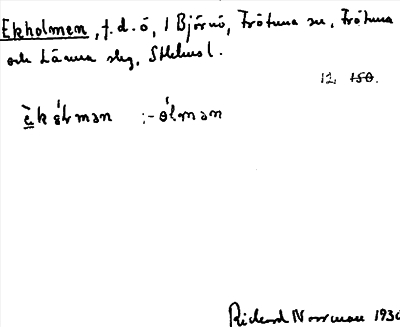 Ekholmen, f.d. ö, i Björnö, Frötuna sn, Frötuna
och Länna slg, Sthlms l.
12 150.
è̱kɵ́lmən :-ɵ́lmən
Rickard Norrman 1930